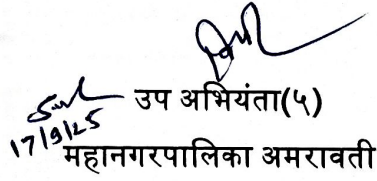 उप अभियंता(५)
17/9/25
महानगरपालिका अमरावती